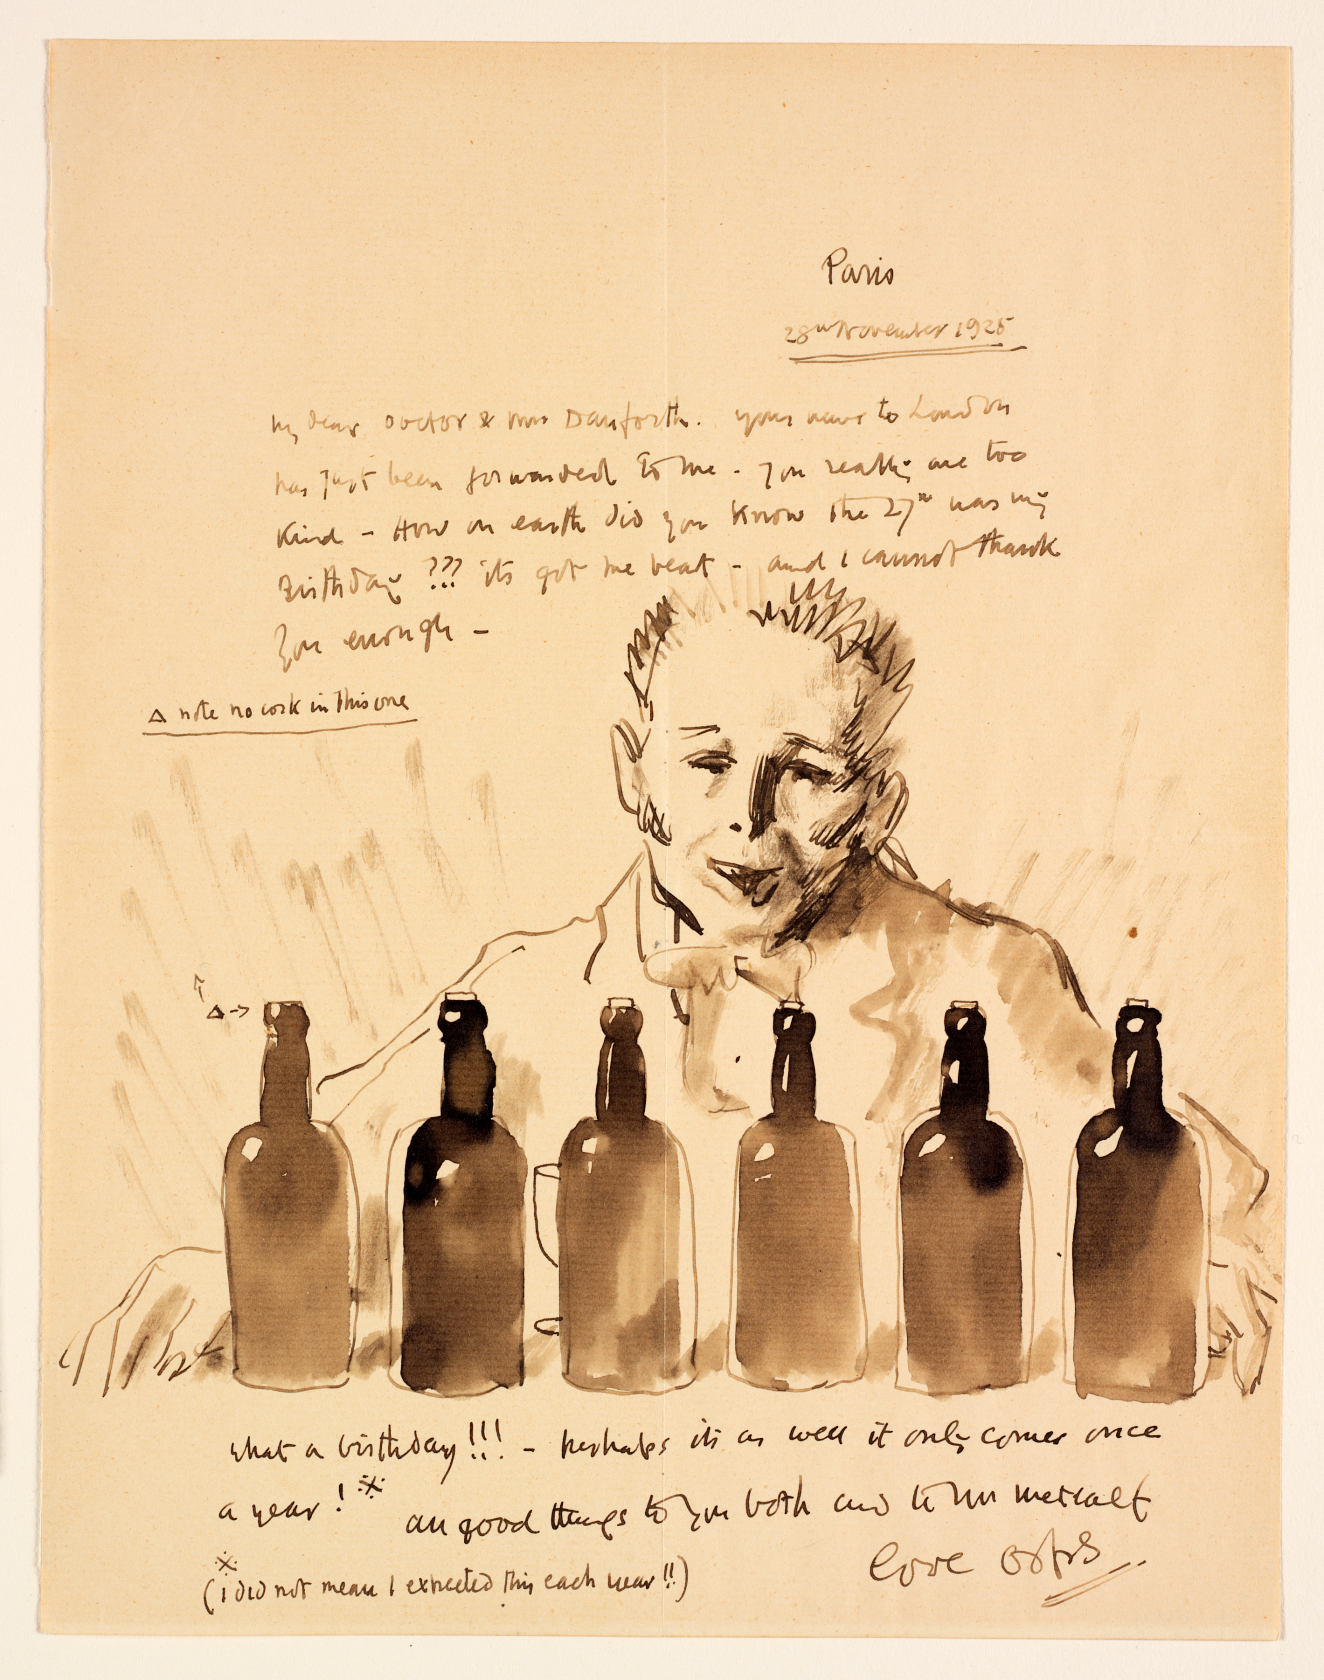 Paris
28th November 1925
My dear Doctor & Mrs Danforth. yours to London
has just been forwarded to me - you really are too
kind - How on earth did you know the 27th was my
Birthday ??? its got me beat - and I cannot thank
you enough -
△ note no cork in this one
△ →
what a birthday!!! - perhaps its as well it only comes once
a year! ※ all good things to you both and to Mr Metcalf
love Orps
※
(I did not mean I expected this each year!!)